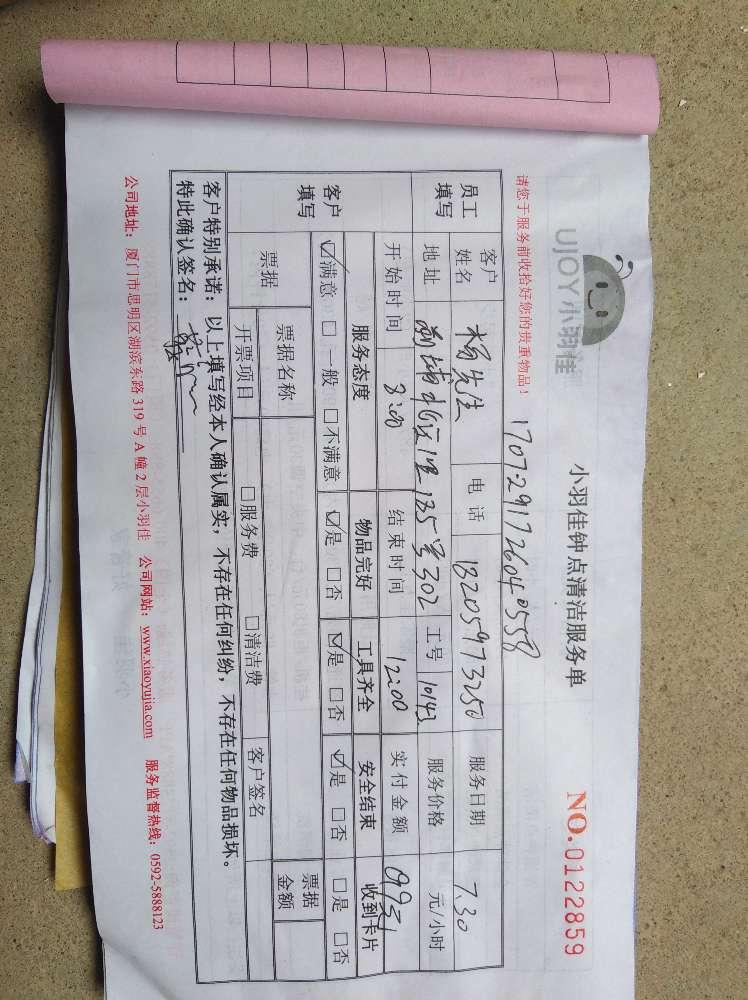 UJOY小羽佳
小羽佳钟点清洁服务单
NO.0122859
请您于服务前收拾好您的贵重物品！
员工填写 客户姓名 杨先生 电话 13205973250 服务日期 7.30
地址 135号302 工号 10143 服务价格 元/小时
开始时间 8:00 结束时间 12:00 实付金额
客户填写 服务态度 物品完好 工具齐全 安全结束 收到卡片
☑满意 □一般 □不满意 ☑是 □否 ☑是 □否 ☑是 □否 □是 □否
票据 票据名称 票据金额
开票项目 □服务费 □清洁费 客户签名
客户特别承诺：以上填写经本人确认属实，不存在任何纠纷，不存在任何物品损坏。
特此确认签名：
公司地址：厦门市思明区湖滨东路319号A幢2层小羽佳 公司网站：www.xiaoyujia.com 服务监督热线：0592-5888123